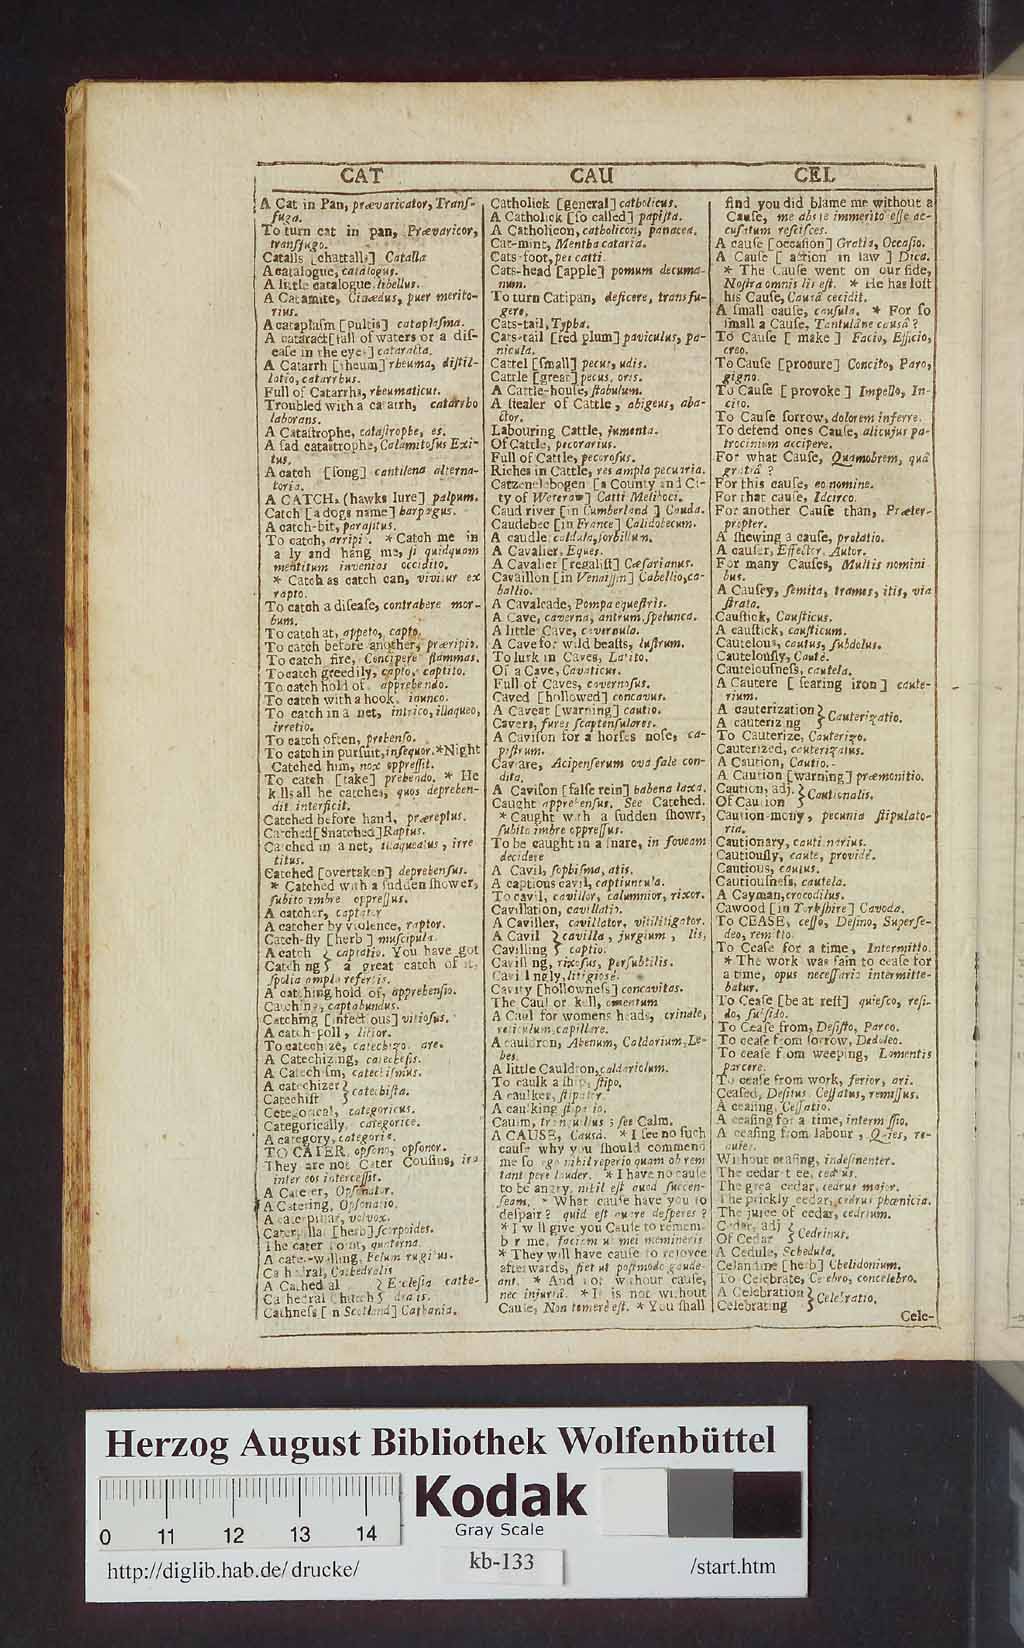 CAT
A Cat in Pan, prævaricator, Tranſ-
fuga.
To turn cat in pan, Prævaricor,
transfugo.
Catalls [chattalls] Catalla
A catalogue, catalogus.
A little catalogue, libellus.
A Catamite, Cinædus, puer merito-
rius.
A cataplaſm [pultis] cataplaſma.
A cataract [fall of waters or a diſ-
eaſe in the eyes] cataracta.
A Catarrh [rheum] rheuma, diſtil-
latio, catarrhus.
Full of Catarrhs, rheumaticus.
Troubled with a catarrh, catarrho
laborans.
A Cataſtrophe, cataſtrophe, es.
A ſad cataſtrophe, Calamitoſus Exi-
tus.
A catch [ſong] cantilena alterna-
toria.
A CATCH, (hawks lure] palpum.
Catch [a dogs name] harpagus.
A catch-bit, paraſitus.
To catch, arripio. * Catch me in
a ly and hang me, ſi quidquam
mentitum invenios occidito.
* Catch as catch can, vivitur ex
rapto.
To catch a diſeaſe, contrahere mor-
bum.
To catch at, appeto, capto.
To catch before another, præripio.
To catch fire, Concipere flammas.
To catch greedily, capto, captito.
To catch hold of, apprehendo.
To catch with a hook, inunco.
To catch in a net, intrico, illaqueo,
irretio.
To catch often, prehenſo.
To catch in purſuit, inſequor. *Night
Catched him, nox oppreſſit.
To catch [take] prehendo. * He
kills all he catches, quos deprehen-
dit interficit.
Catched before hand, præreptus.
Catched [Snatched] Rapius.
Catched in a net, illaqueatus, irre
titus.
Catched [overtaken] deprehenſus.
* Catched with a ſudden ſhower,
ſubito imbre oppreſſus.
A catcher, captator
A catcher by violence, raptor.
Catch-fly [herb] muſcipula.
A catch } captatio. You have got
Catching } a great catch of it,
ſpolia ampla refertis.
A catching hold of, apprehenſio.
Catching, captabundus.
Catching [infectious] vitioſus.
A catch-poll, lictor.
To catechize, catechizo, are.
A Catechizing, catecheſis.
A Catechiſm, catechiſmus.
A catechizer }
Catechiſt } catechiſta.
Cetegorical, categoricus.
Categorically, categorice.
A category, categoria.
TO CATER, opſono, opſonor.
They are not Cater Couſins, ira
inter eos interceſſit.
A Caterer, Opſonator.
A Catering, Opſonatio.
A caterpillar, volvox.
Caterpillar [herb] ſcorpoides.
The cater point, quaterna.
A cater-walling, felum rugitus.
Cathedral, Cathedralis
A Cathedral } Eccleſia cathe-
Cathedral Church } dralis.
Cathneſs [in Scotland] Cathania.
CAU
Catholick [general] catholicus.
A Catholick [ſo called] papiſta.
A Catholicon, catholicon, panacea.
Cat-mint, Mentha cataria.
Cats-foot, pes catti.
Cats-head [apple] pomum decuma-
num.
To turn Catipan, deficere, transfu-
gere.
Cats-tail, Typha.
Cats-tail [red plum] paniculus, pa-
nicula.
Cattel [ſmall] pecus, udis.
Cattle [great] pecus, oris.
A Cattle-houſe, ſtabulum.
A ſtealer of Cattle, abigeus, aba-
ctor.
Labouring Cattle, jumenta.
Of Cattle, pecorarius.
Full of Cattle, pecoroſus.
Riches in Cattle, res ampla pecuaria.
Catzenelebogen [a County and Ci-
ty of Weteraw] Catti Meliboci.
Caud river [in Cumberland] Cauda.
Caudebec [in France] Calidobecum.
A caudle caldula, ſorbillum.
A Cavalier, Eques.
A Cavalier [regaliſt] Cæſarianus.
Cavaillon [in Venaiſſin] Cabellio, ca-
ballio.
A Cavalcade, Pompa equeſtris.
A Cave, caverna, antrum, ſpelunca.
A little Cave, cavernula.
A Cave for wild beaſts, luſtrum.
To lurk in Caves, Latito.
Of a Cave, Cavaticus.
Full of Caves, cavernoſus.
Caved [hollowed] concavus.
A Caveat [warning] cautio.
Cavers, fures ſcaptenſulares.
A Caviſon for a horſes noſe, ca-
piſtrum.
Caviare, Acipenſerum ova ſale con-
dita.
A Caviſon [falſe rein] habena laxa.
Caught apprehenſus. See Catched.
* Caught with a ſudden ſhowr,
ſubito imbre oppreſſus.
To be caught in a ſnare, in foveam
decidere
A Cavil, ſophiſma, atis.
A captious cavil, captiuncula.
To cavil, cavillor, calumnior, rixor.
Cavillation, cavillatio.
A Caviller, cavillator, vitilitigator.
A Cavil } cavilla, jurgium, lis,
Cavilling } captio.
Cavilling, rixoſus, perſubtilis.
Cavillingly, litigioſe.
Cavity [hollowneſs] concavitas.
The Caul or kell, omentum
A Caul for womens heads, crinale,
reticulum, capillare.
A cauldron, Ahenum, Caldarium, Le-
bes.
A little Cauldron, caldariolum.
To caulk a ſhip, ſtipo.
A caulker, ſtipator.
A caulking ſtipatio.
Caulm, tranquillus; ſee Calm.
A CAUSE, Causa. * I ſee no ſuch
cauſe why you ſhould commend
me ſo ego nihil reperio quam ob rem
tant pere lauder. * I have no cauſe
to be angry, nihil eſt quod ſuccen-
ſeam. * What cauſe have you to
deſpair? quid eſt quare deſperes?
* I will give you Cauſe to remem-
ber me, faciam ut mei memineris
* They will have cauſe to rejoyce
afterwards, fiet ut poſtmodo gaude-
ant. * And not without cauſe,
nec injuriâ. * It is not without
Cauſe, Non temerè eſt. * You ſhall
CEL
find you did blame me without a
Cauſe, me abs te immerito eſſe ac-
cuſatum reſciſces.
A cauſe [occaſion] Gratia, Occaſio.
A Cauſe [action in law] Dica.
* The Cauſe went on our ſide,
Noſtra omnis lis eſt. * He has loſt
his Cauſe, Causâ cecidit.
A ſmall cauſe, cauſula. * For ſo
ſmall a Cauſe, Tantulâne causâ?
To Cauſe [make] Facio, Efficio,
creo.
To Cauſe [procure] Concito, Paro,
gigno.
To Cauſe [provoke] Impello, In-
cito.
To Cauſe ſorrow, dolorem inferre.
To defend ones Cauſe, alicujus pa-
trocinium accipere.
For what Cauſe, Quamobrem, quâ
gratiâ?
For this cauſe, eo nomine.
For that cauſe, Idcirco.
For another Cauſe than, Præter-
propter.
A ſhewing a cauſe, prolatio.
A cauſer, Effector, Autor.
For many Cauſes, Multis nomini
bus.
A Cauſey, ſemita, trames, itis, via
ſtrata.
Cauſtick, Cauſticus.
A cauſtick, cauſticum.
Cautelous, cautus, ſubdolus.
Cautelouſly, Cautè.
Cautelouſneſs, cautela.
A Cautere [ſearing iron] caute-
rium.
A cauterization }
A cauterizing } Cauterizatio.
To Cauterize, Cauterizo.
Cauterized, cauterizatus.
A Caution, Cautio.
A Caution [warning] præmonitio.
Caution, adj. }
Of Caution } Cautionalis.
Caution-mony, pecunia ſtipulato-
ria.
Cautionary, cautionarius.
Cautiouſly, caute, providè.
Cautious, cautus.
Cautiouſneſs, cautela.
A Cayman, crocodilus.
Cawood [in Torkſhire] Cavoda.
To CEASE, ceſſo, Deſino, Superſe-
deo, remitto.
To Ceaſe for a time, Intermitto.
* The work was fain to ceaſe for
a time, opus neceſſario intermitte-
batur.
To Ceaſe [be at reſt] quieſco, reſi-
do, ſubſido.
To Ceaſe from, Deſiſto, Parco.
To ceaſe from ſorrow, Dedoleo.
To ceaſe from weeping, Lamentis
parcere.
To ceaſe from work, ferior, ari.
Ceaſed, Deſitus, Ceſſatus, remiſſus.
A ceaſing, Ceſſatio.
A ceaſing for a time, intermiſſio.
A ceaſing from labour, Quies, re-
quies.
Without ceaſing, indeſinenter.
The cedar-tree, cedrus.
The great cedar, cedrus major.
The prickly cedar, cedrus phœnicia.
The juice of cedar, cedrium.
Cedar, adj }
Of Cedar } Cedrinus.
A Cedule, Schedula.
Celandine [herb] Chelidonium.
To Celebrate, Celebro, concelebro.
A Celebration }
Celebrating } Celebratio.
Cele-
Herzog August Bibliothek Wolfenbüttel
0 11 12 13 14
Kodak
Gray Scale
http://diglib.hab.de/drucke/
kb-133
/start.htm